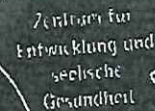 Zentrum für
Entwicklung und
seelische
Gesundheit